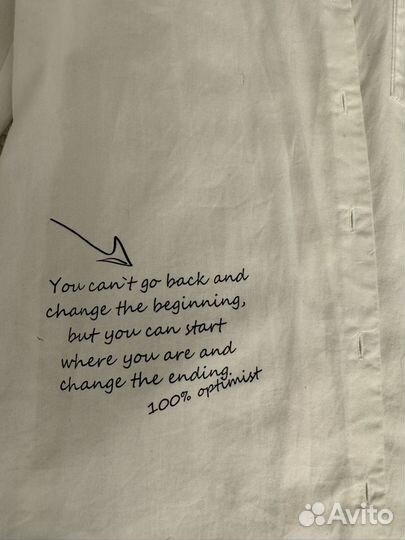 You can`t go back and
change the beginning,
but you can start
where you are and
change the ending.
100% optimist
Avito